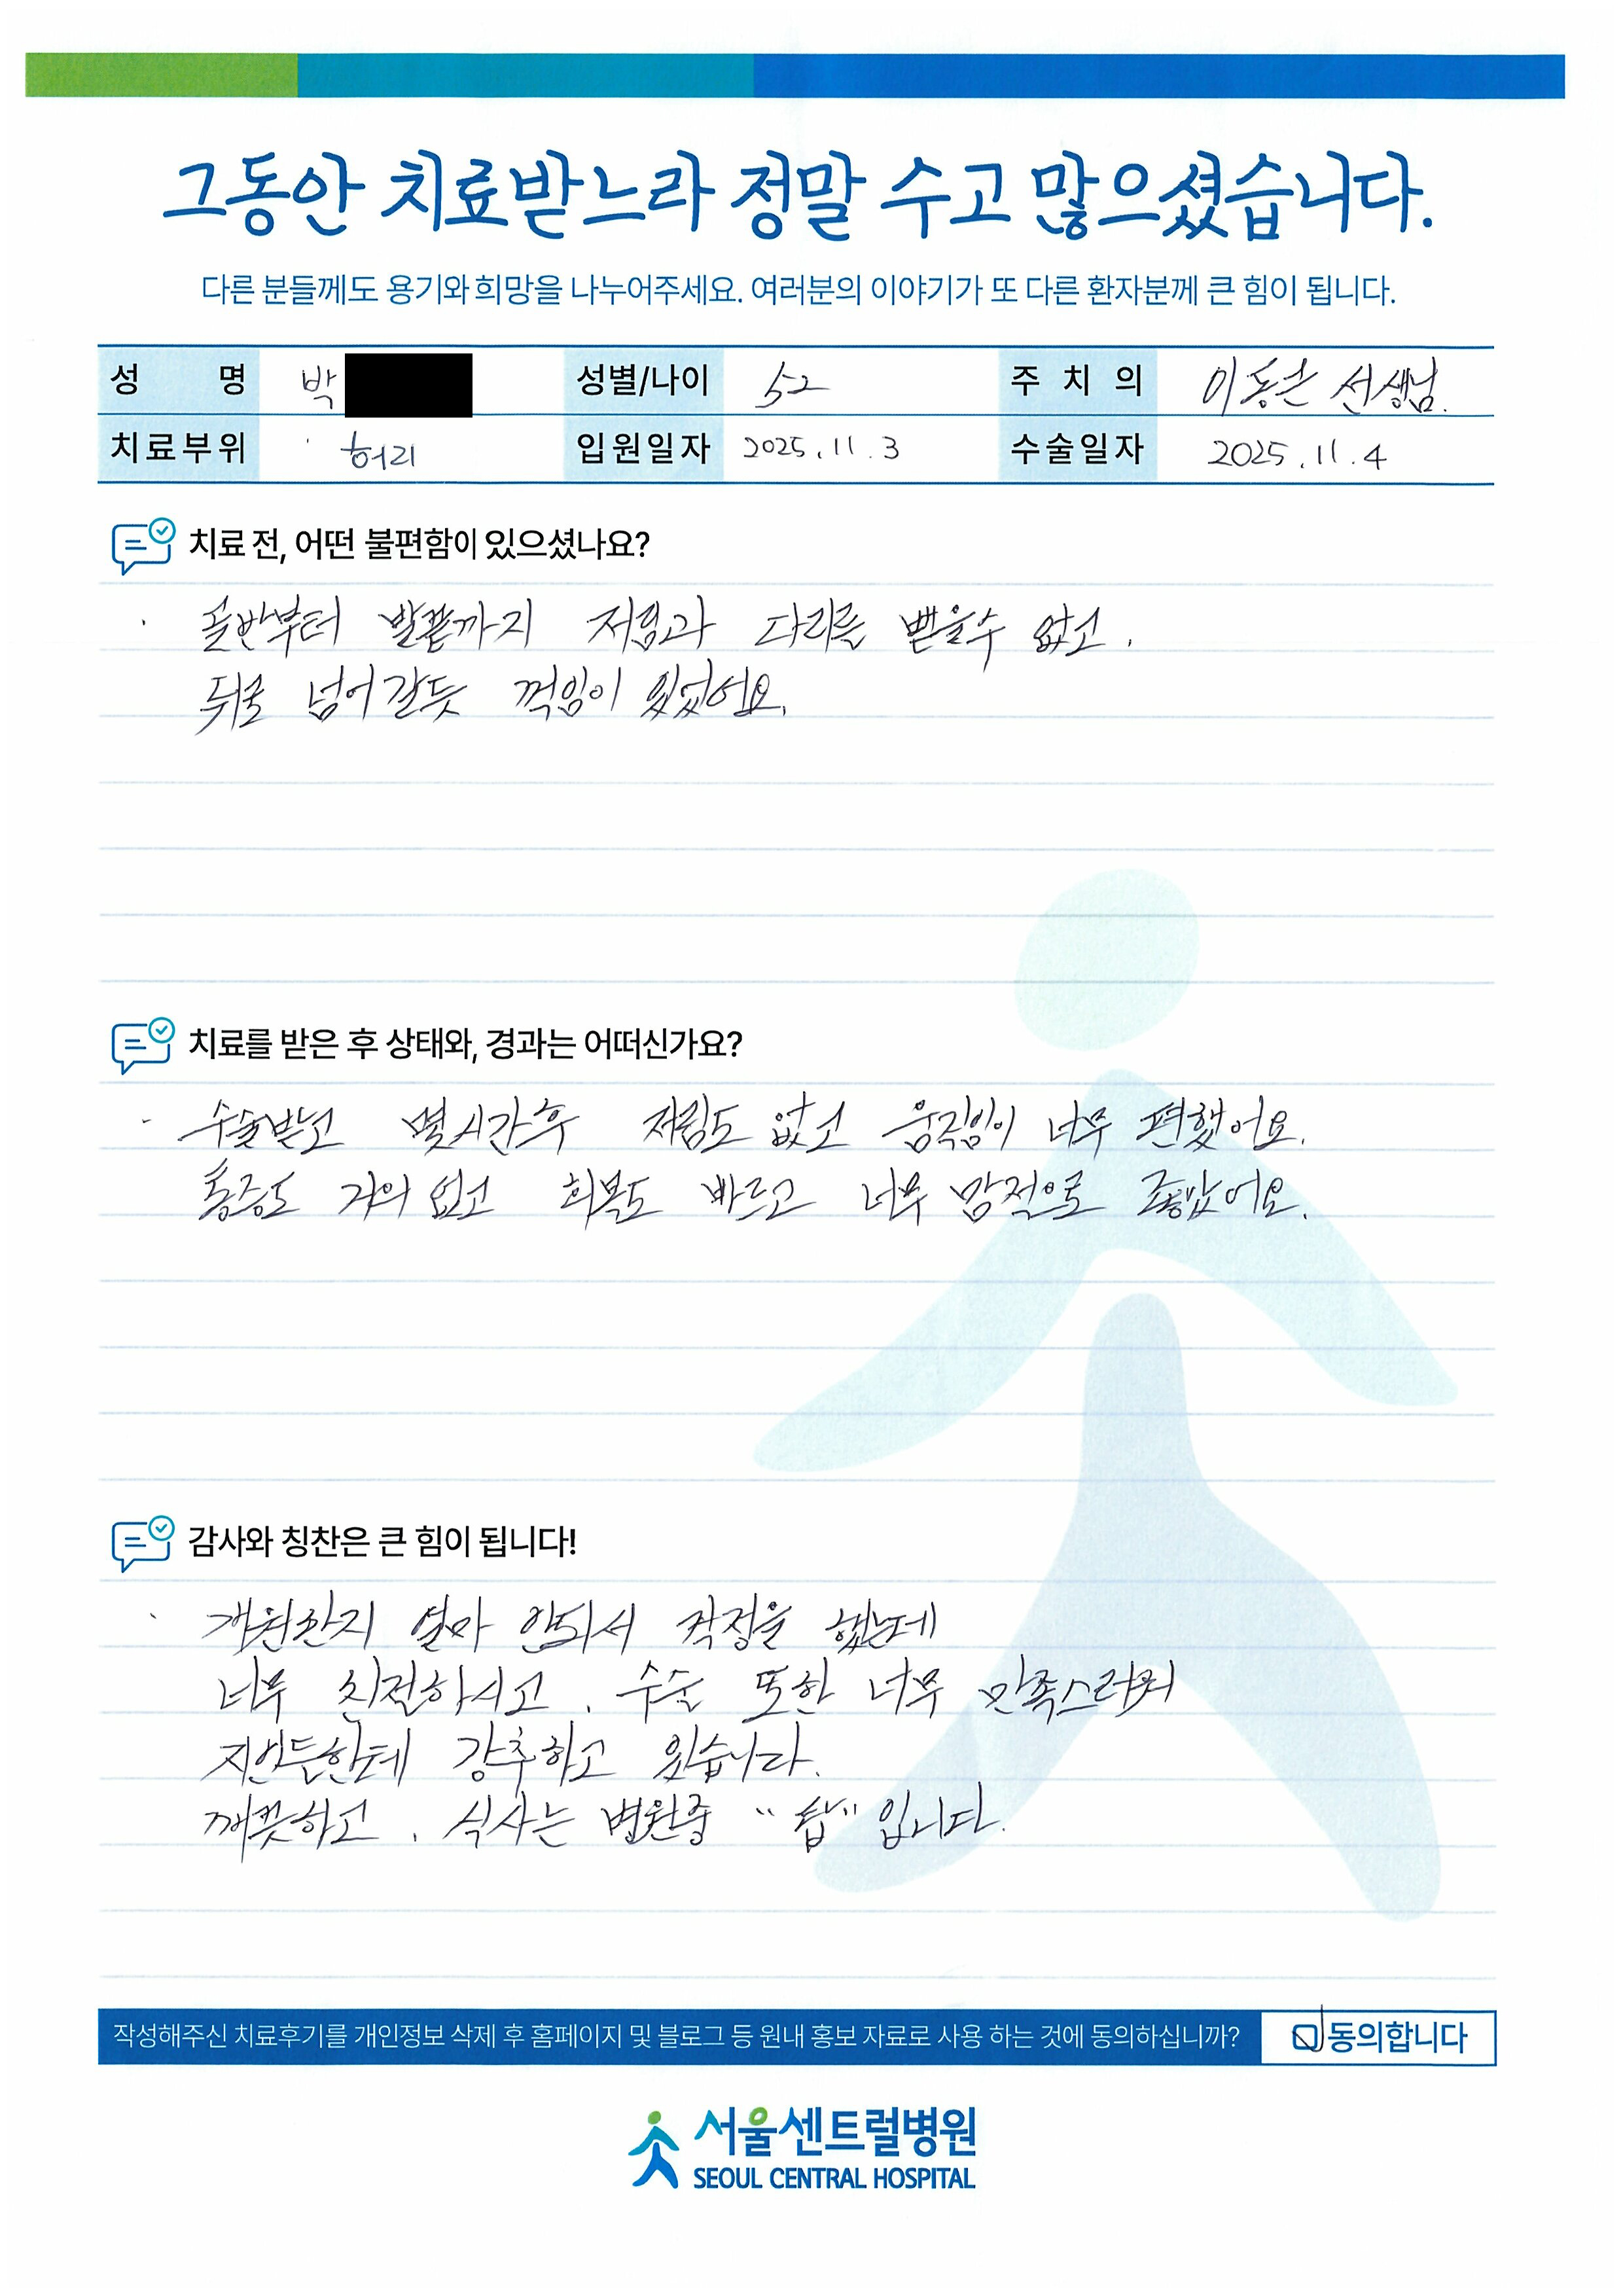 그동안 치료받느라 정말 수고 많으셨습니다.
다른 분들께도 용기와 희망을 나누어주세요. 여러분의 이야기가 또 다른 환자분께 큰 힘이 됩니다.
성 명 박 성별/나이 52 주 치 의 이동근 선생님.
치료부위 허리 입원일자 2025.11.3 수술일자 2025.11.4
치료 전, 어떤 불편함이 있으셨나요?
· 골반부터 발끝까지 저림과 다리를 뻗을수 없고.
뒤로 넘어갈듯 꺽임이 있었어요.
치료를 받은 후 상태와, 경과는 어떠신가요?
- 수술받고 몇시간후 저림도 없고 움직임이 너무 편했어요.
통증도 거의 없고 회복도 빠르고 너무 만족으로 좋았어요.
감사와 칭찬은 큰 힘이 됩니다!
· 개원한지 얼마 안되서 걱정을 했는데
너무 친절하시고. 수술 또한 너무 만족스러워
지인들한테 강추하고 있습니다.
깨끗하고. 식사는 병원중 "탑" 입니다.
작성해주신 치료후기를 개인정보 삭제 후 홈페이지 및 블로그 등 원내 홍보 자료로 사용 하는 것에 동의하십니까? 동의합니다
서울센트럴병원
SEOUL CENTRAL HOSPITAL